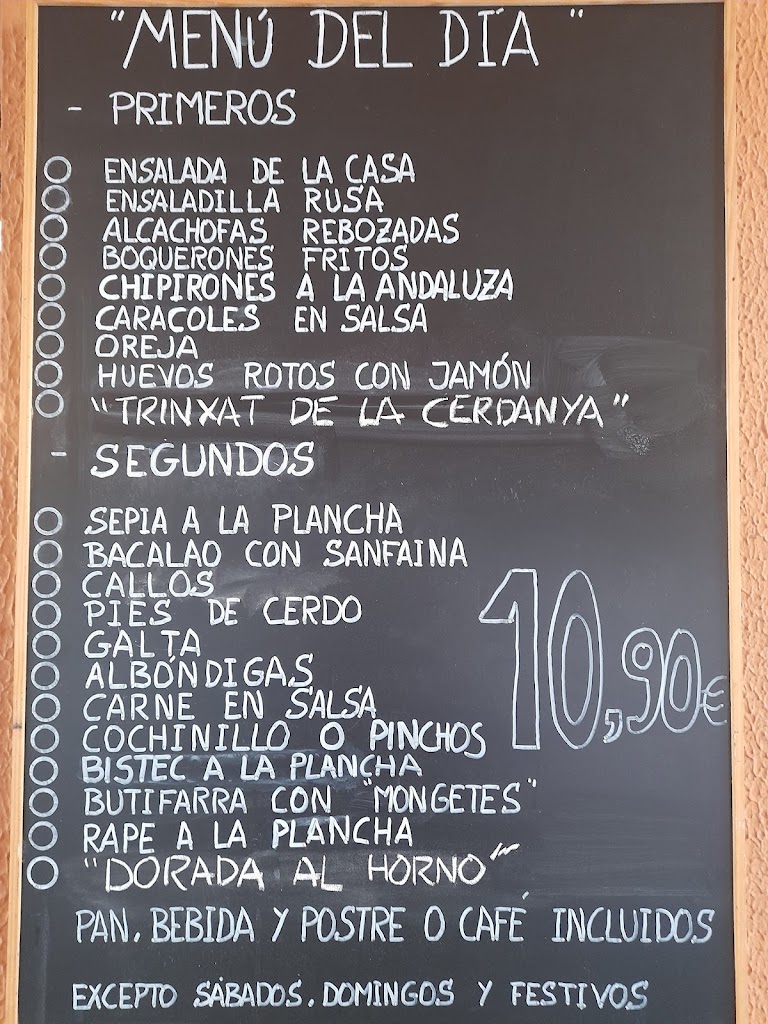 "MENÚ DEL DÍA"
- PRIMEROS
ENSALADA DE LA CASA
ENSALADILLA RUSA
ALCACHOFAS REBOZADAS
BOQUERONES FRITOS
CHIPIRONES A LA ANDALUZA
CARACOLES EN SALSA
OREJA
HUEVOS ROTOS CON JAMÓN
"TRINXAT DE LA CERDANYA"
- SEGUNDOS
SEPIA A LA PLANCHA
BACALAO CON SANFAINA
CALLOS
PIES DE CERDO
GALTA
ALBÓNDIGAS
CARNE EN SALSA
COCHINILLO O PINCHOS
BISTEC A LA PLANCHA
BUTIFARRA CON "MONGETES"
RAPE A LA PLANCHA
"DORADA AL HORNO"
10,90€
PAN. BEBIDA Y POSTRE O CAFÉ INCLUIDOS
EXCEPTO SÁBADOS. DOMINGOS Y FESTIVOS